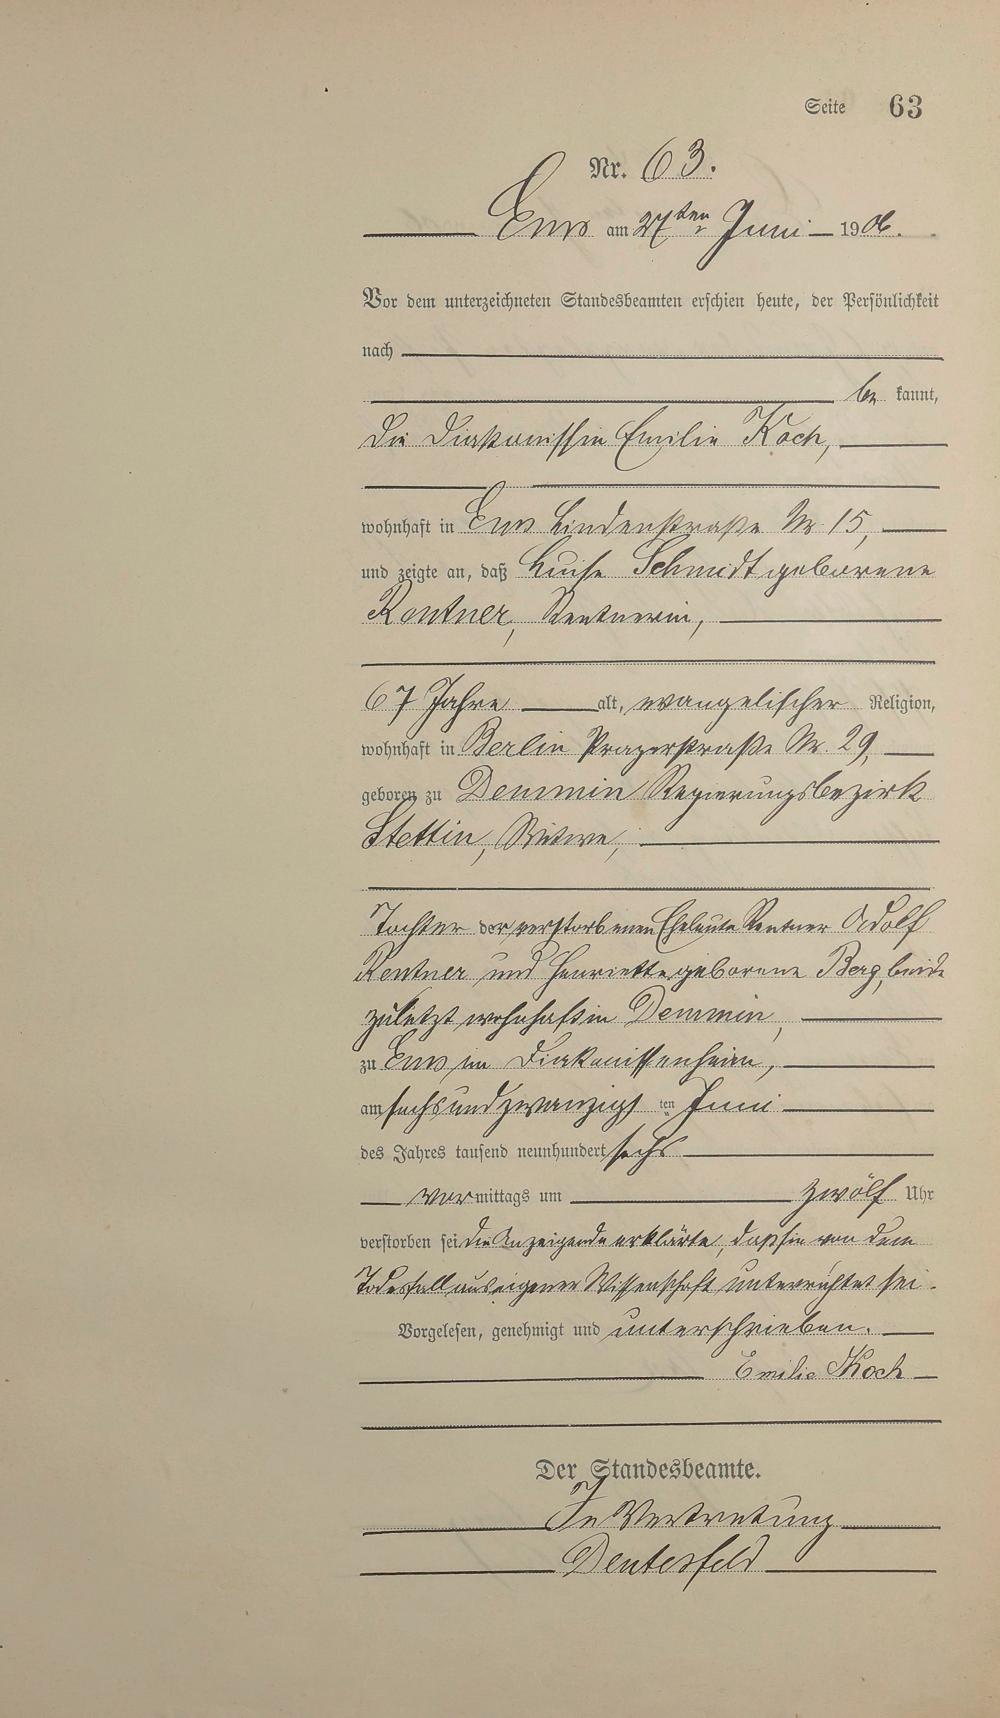 Seite 63
Nr. 63.
Ems am 27ten Juni 1906.
Vor dem unterzeichneten Standesbeamten erschien heute, der Persönlichkeit
nach
be kannt,
die Diakonissin Emilie Koch,
wohnhaft in Ems Lindenstraße Nr. 15,
und zeigte an, daß Luise Schmidt geborene
Rentner, Rentnerin,
67 Jahre alt, evangelischer Religion,
wohnhaft in Berlin Pragerstraße Nr. 29,
geboren zu Demmin Regierungsbezirk
Stettin, Witwe,
Tochter der verstorbenen Eheleute Rentner Adolf
Rentner und Henriette geborene Berg, beide
zuletzt wohnhaft in Demmin,
zu Ems im Diakonissenheim,
am sechsundzwanzigsten Juni
des Jahres tausend neunhundert sechs
vormittags um zwölf Uhr
verstorben sei. Die Anzeigende erklärte, daß sie von dem
Todesfall aus eigener Wissenschaft unterrichtet sei.
Vorgelesen, genehmigt und unterschrieben.
Emilie Koch
Der Standesbeamte.
In Vertretung